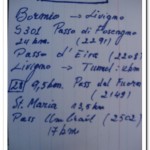 Bormio → Livigno
S301 Passo di Foscagno
24 km (2291)
Passo d'Eira (2208)
Livigno → Tunnel:
28 9,5km Pass dal Fuorn
(2149)
St. Maria 13,5km
Pass Umbrail (2502)
17km